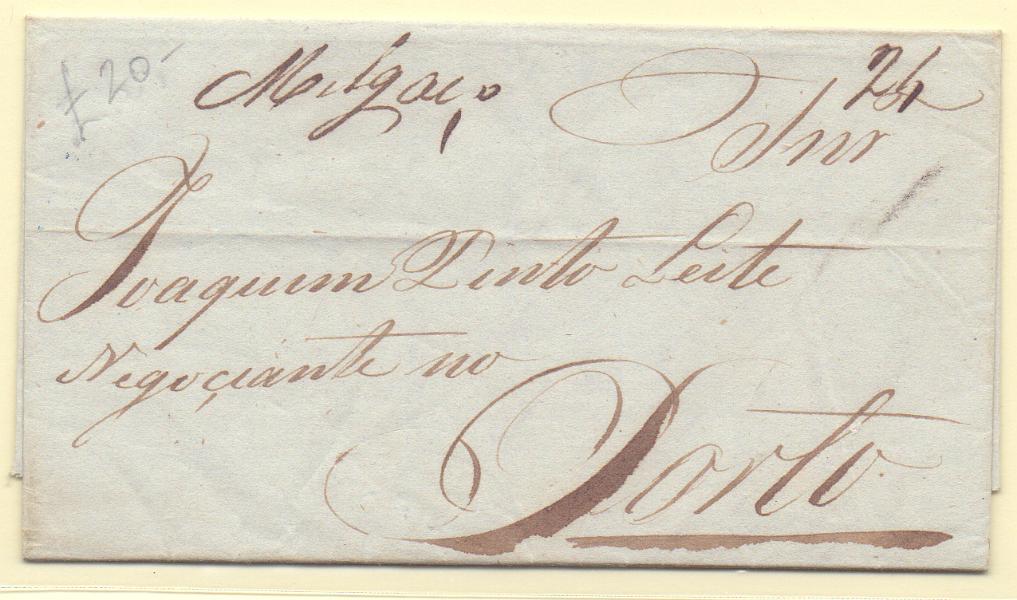 £20.-
Melgaço
Snr
Joaquim Pinto Leite
Negoçiante no
Porto